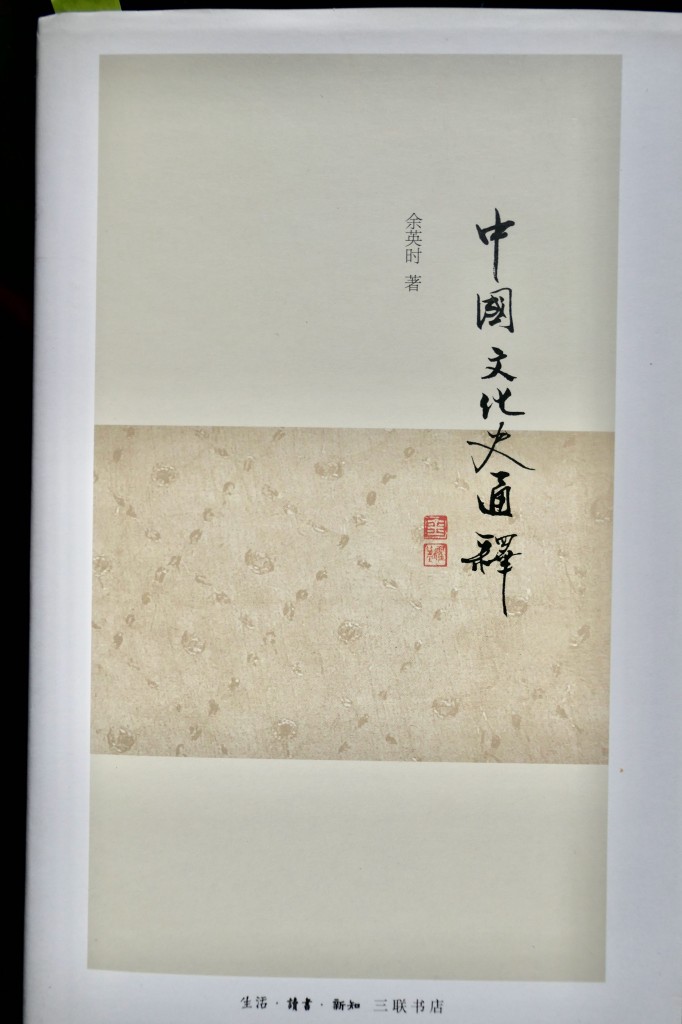 中國文化史通釋
余英时 著
生活·讀書·新知 三联书店